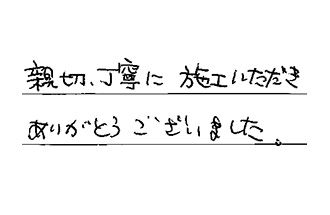 親切、丁寧に 施工いただき
ありがとうございました。